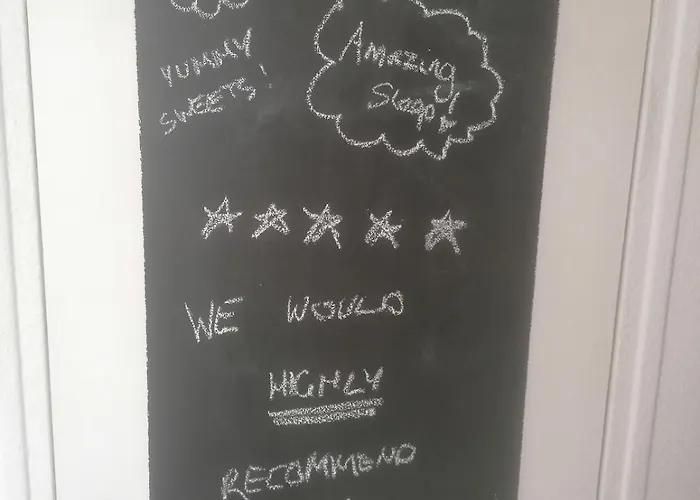 YUMMY
SWEETS!
Amazing
Sleep!
WE WOULD
HIGHLY
RECOMMEND